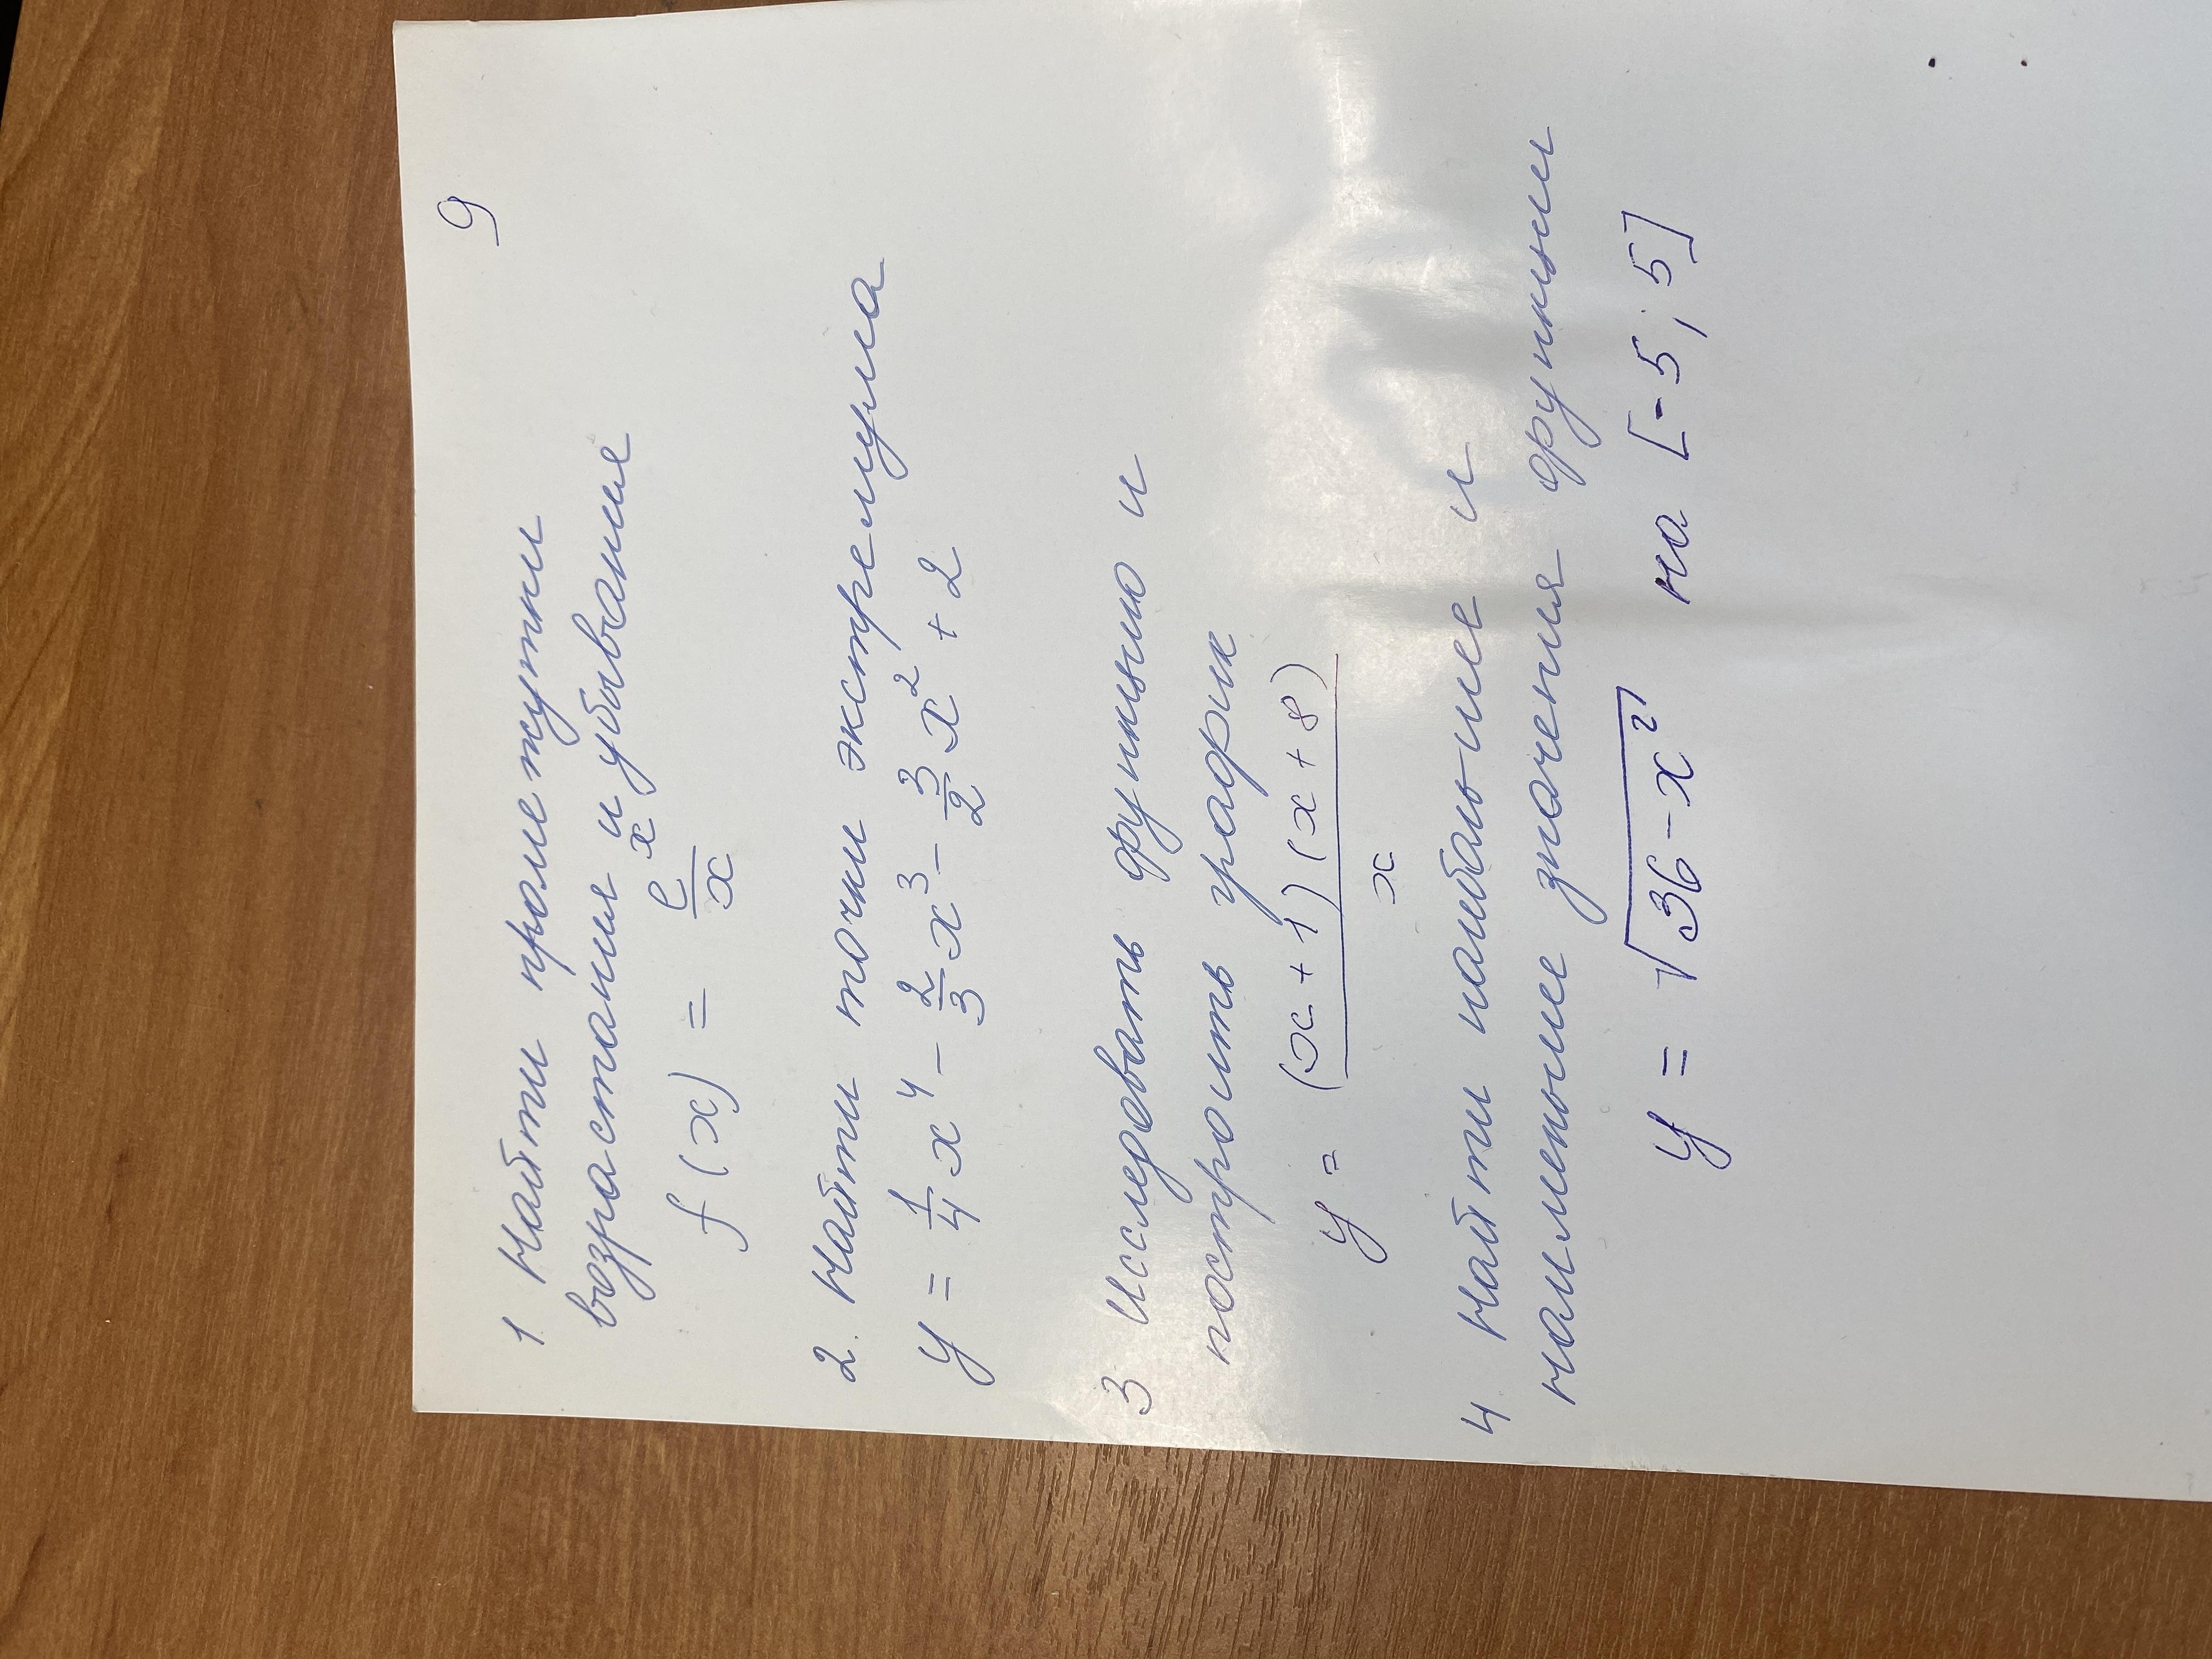 9
1. Найти промежутки
возрастания и убывания
f(x) = e^x/x
2. Найти точки экстремума
y = 1/4 x^4 - 2/3 x^3 - 3/2 x^2 + 2
3 Исследовать функцию и
построить график
y = (x+1)(x+8)/x
4 Найти наибольшее и
наименьшее значения функции
y = √(36-x^2) на [-5; 5]